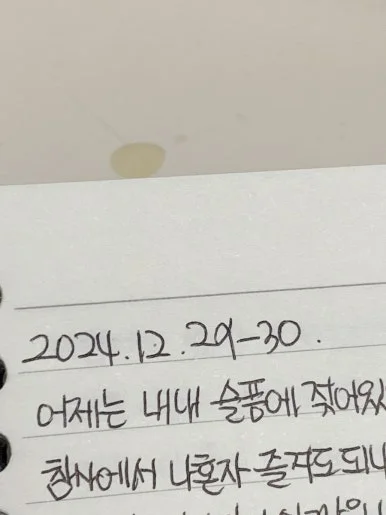 2024.12.29-30.
어제는 내내 슬픔에 젖어있
참사에서 나혼자 즐겨도 되나